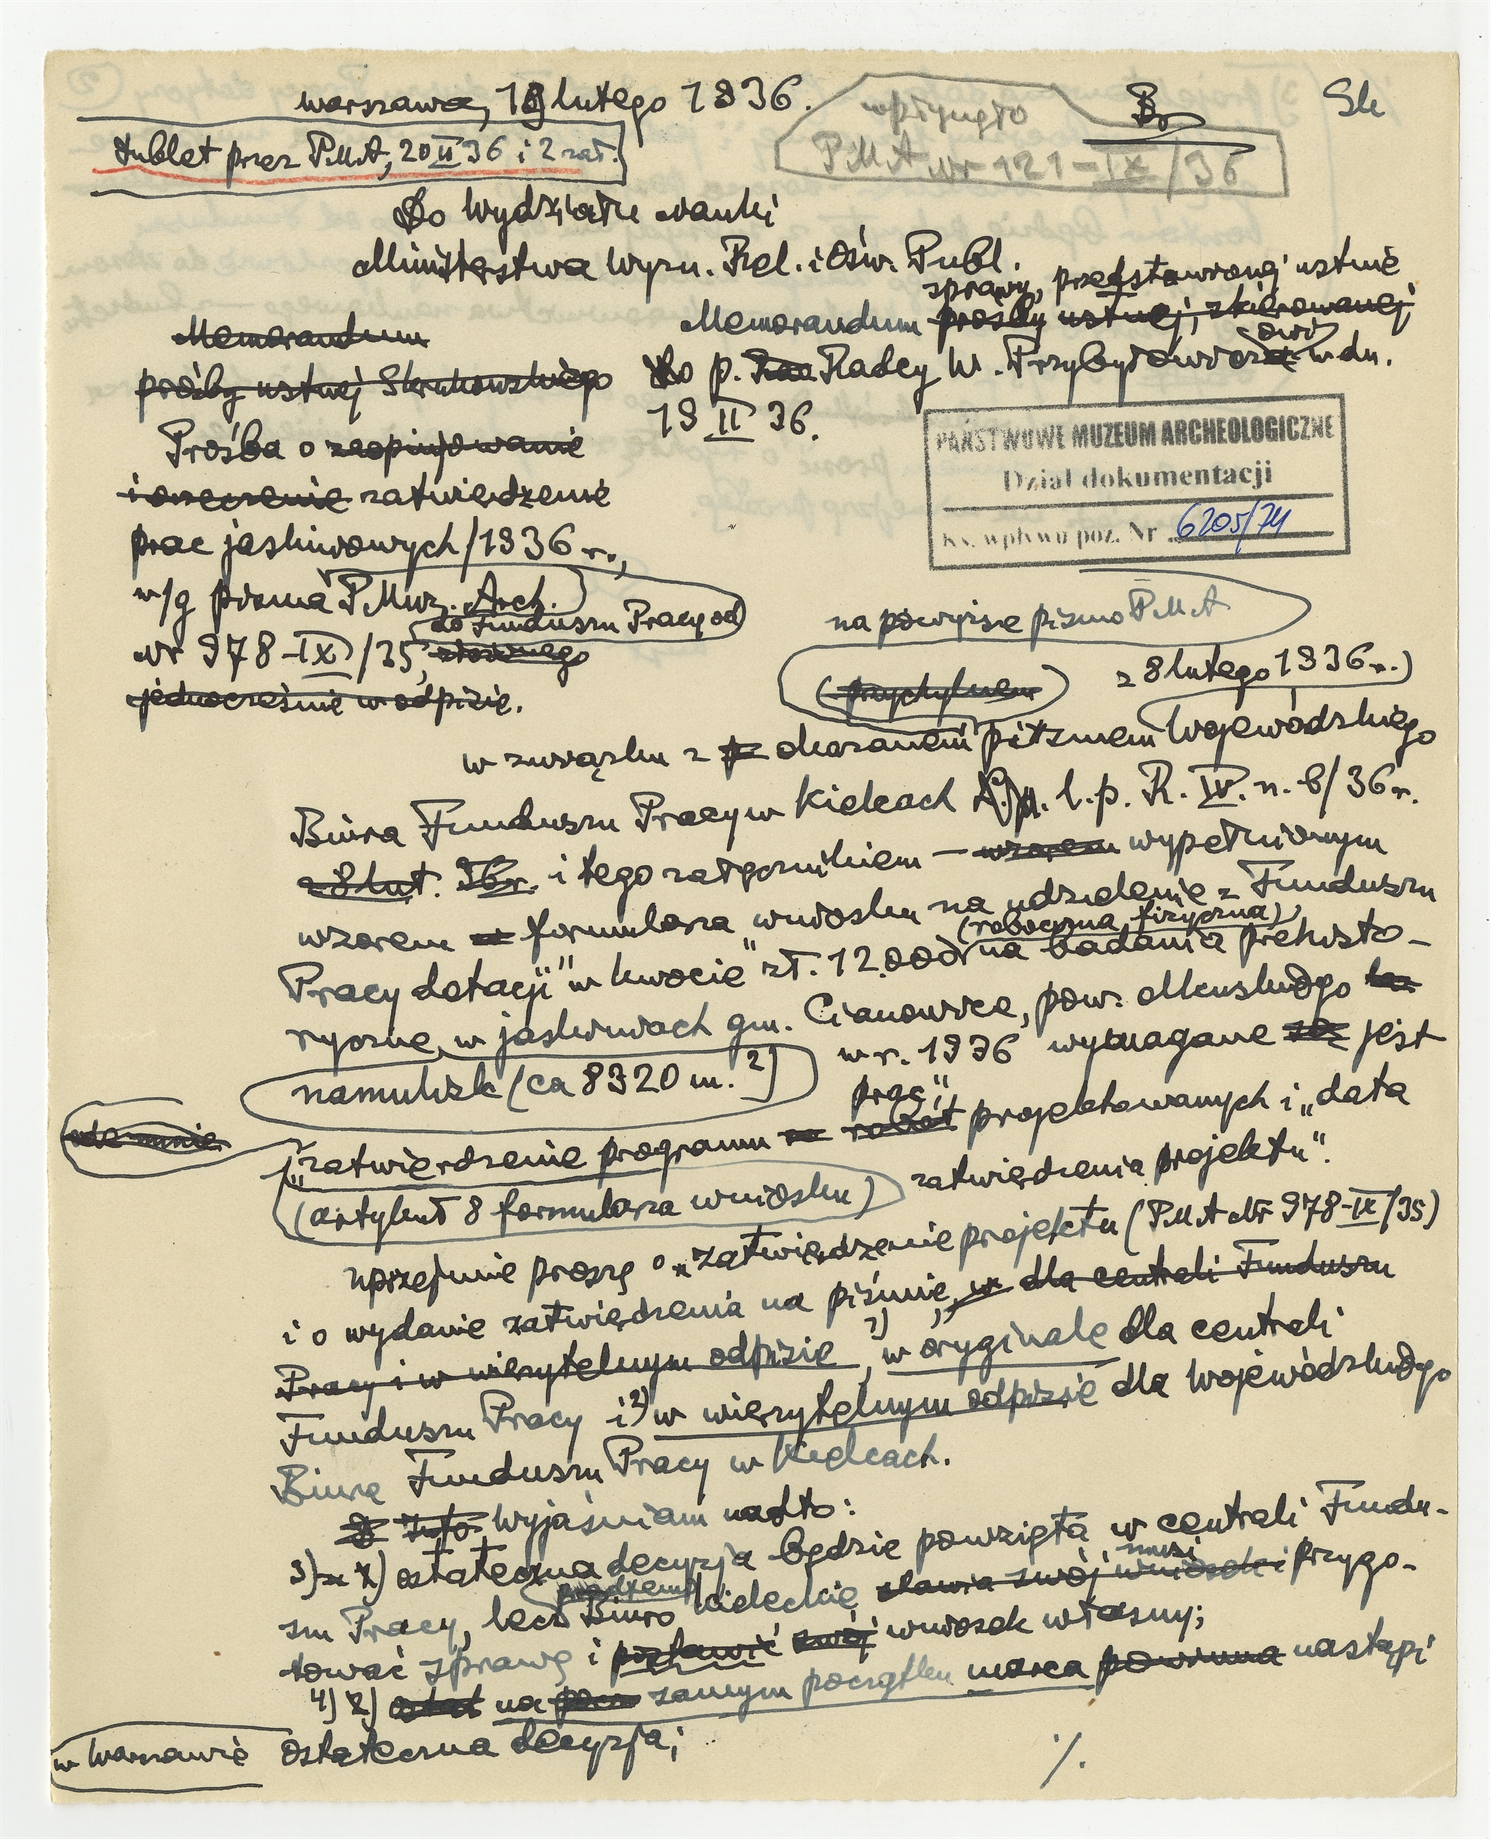 Warszawa, 19 lutego 1936.
wpłynęło
PMA nr 121-IX/36
Sk
dublet przez PMA, 20 II 36 i 2 zał.
Do Wydziału Nauki
Ministerstwa Wyzn. Rel. i Ośw. Publ.
sprawy, przedstawionej ustnie
Memorandum prośby ustnej, skierowanej
do p. Radcy W. Przybyłowiczowi w dn.
19 II 36.
Memorandum
prośby ustnej Skrukowskiego
Prośba o zaopinjowanie
i orzeczenie zatwierdzenie
prac jaskiniowych/1936 r.,
w/g pisma P. Muz. Arch.
do Funduszu Pracy od
Nr 978-IX/35, słownego
jednocześnie w odpisie.
PAŃSTWOWE MUZEUM ARCHEOLOGICZNE
Dział dokumentacji
Ks. wpływu poz. Nr 6205/74
na powyższe pismo PMA
(przychylnem) z 8 lutego 1936 r.)
w związku z okazanem pismem Wojewódzkiego
Biura Funduszu Pracy w Kielcach l.p. R. IV. n. 6/36 r.
z 8 lut. 36 r. i tego załącznikiem — wzorem wypełnionym
wzorem formularza wniosku na udzielenie z Funduszu
(robocizna fizyczna)
Pracy dotacji" w kwocie" zł. 12.000 na badania prehisto-
ryczne w jaskiniach gm. Cianowice, pow. olkuskiego
namulisk (ca 8320 m.²) w r. 1936 wymagane są jest
prac"
„zatwierdzenie programu robót projektowanych i „data
(artykuł 8 formularza wniosku) zatwierdzenia projektu".
Uprzejmie proszę o „zatwierdzenie projektu (PMA Nr 978-IX/35)
i o wydanie zatwierdzenia na piśmie, w dla centrali Funduszu
Pracy i w wierzytelnym odpisie, 1) w oryginale dla centrali
Funduszu Pracy i 2) w wierzytelnym odpisie dla Wojewódzkiego
Biura Funduszu Pracy w Kielcach.
Wyjaśniam nadto:
3) ostateczna decyzja będzie powzięta w centrali Fundu-
szu Pracy, lecz Biuro kieleckie stawia swój wniosek i musi przygo-
tować sprawę i postawić swój wniosek własny;
4) 2) na samym początku marca powinna nastąpi
w Warszawie ostateczna decyzja;
./.